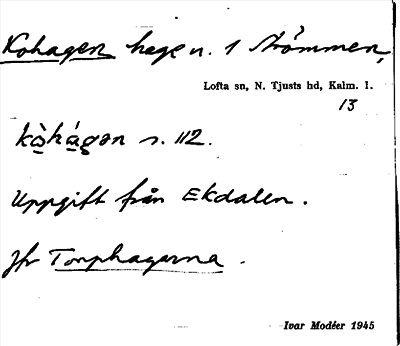 Kohagen hage n. 1 Strömmen,
Lofta sn, N. Tjusts hd, Kalm. l.
13
kò̱há̱gən s. 112.
Uppgift från Ekdalen.
Jfr Torphagarna.
Ivar Modéer 1945